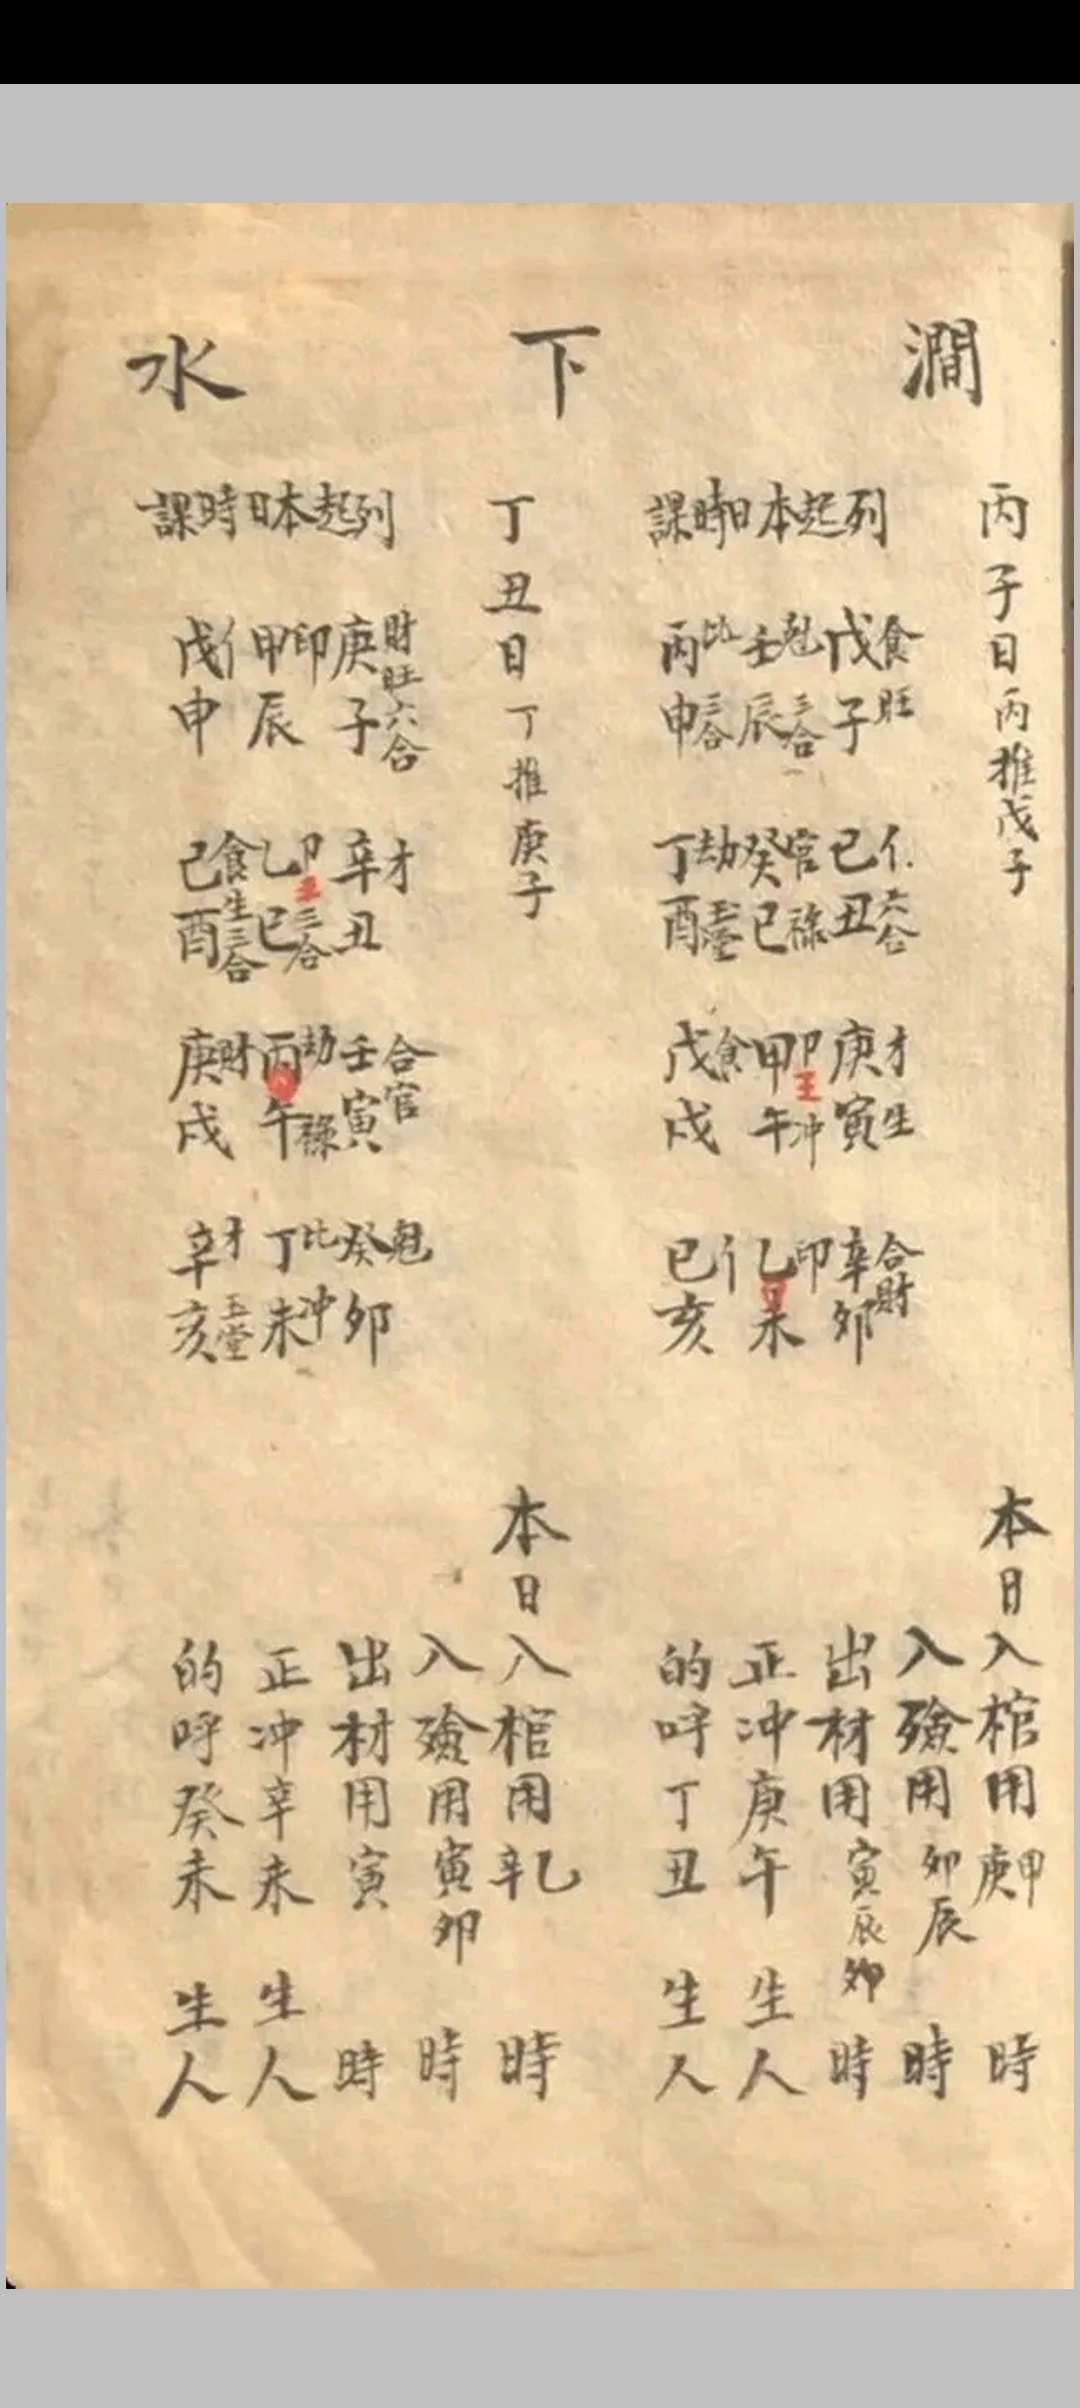 澗下水
丙子日丙推戊子
列起本日時課
戊子 食旺
己丑 亻六合
庚寅 才生
辛卯 合財
壬辰 尅三合
癸巳 官祿
甲午 卩王冲
乙未 印
丙申 比三合
丁酉 劫玉堂
戊戌 食
己亥 亻
本日入棺用甲庚時
入殮用卯辰時
出材用寅辰卯時
正冲庚午生人
的呼丁丑生人
丁丑日丁推庚子
列起本日時課
庚子 財旺六合
辛丑 才
壬寅 合官
癸卯 尅
甲辰 印
乙巳 卩王三合
丙午 劫祿
丁未 比冲
戊申 亻
己酉 食生三合
庚戌 財
辛亥 才玉堂
本日入棺用乙辛時
入殮用寅卯時
出材用寅時
正冲辛未生人
的呼癸未生人